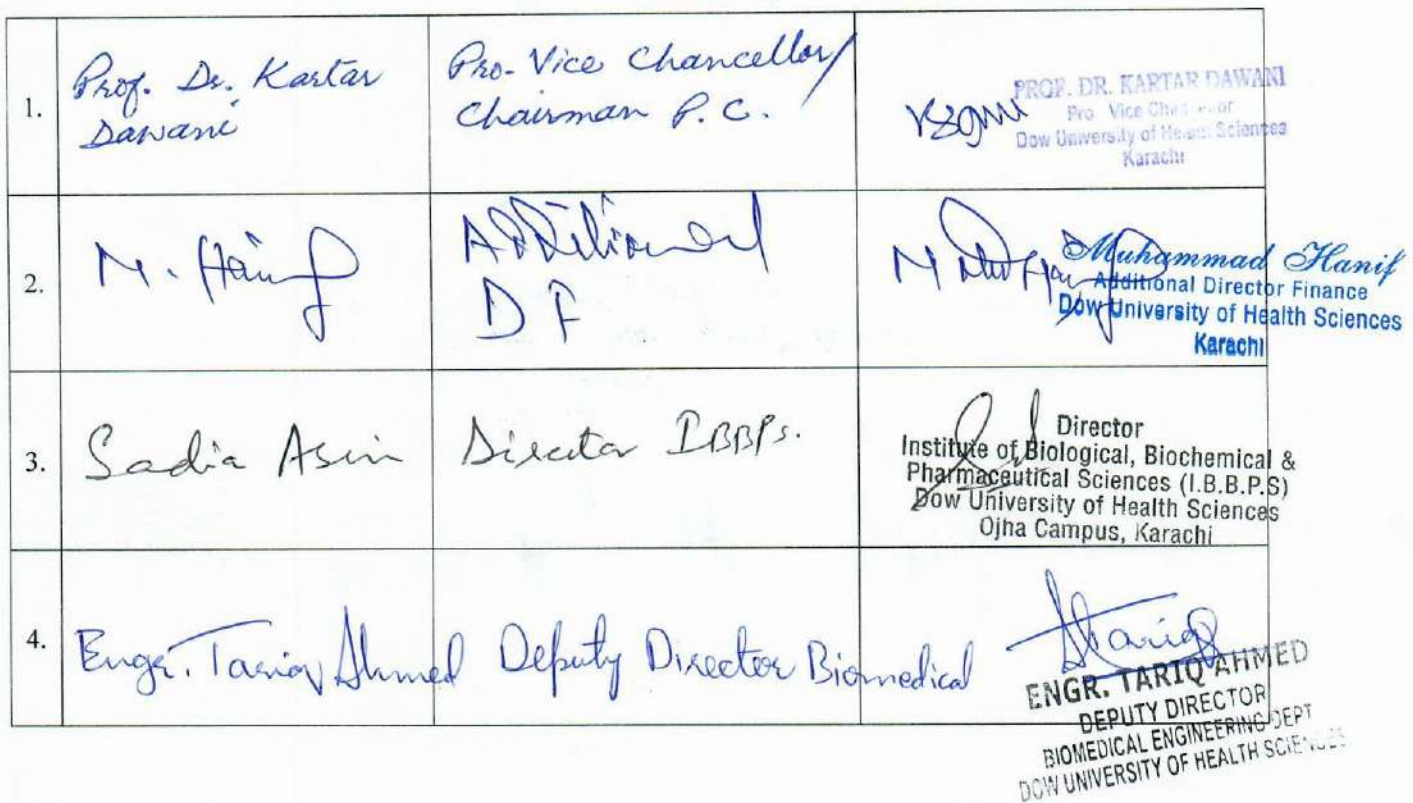 1.
Prof. Dr. Kartar
Dawani
Pro-Vice Chancellor/
Chairman P.C.
PROF. DR. KARTAR DAWANI
Pro Vice Chancellor
Dow University of Health Sciences
Karachi
2.
M. Hanif
Additional
D F
Muhammad Hanif
Additional Director Finance
Dow University of Health Sciences
Karachi
3.
Sadia Asim
Director IBBPs.
Director
Institute of Biological, Biochemical &
Pharmaceutical Sciences (I.B.B.P.S)
Dow University of Health Sciences
Ojha Campus, Karachi
4.
Engr. Tariq Ahmed
Deputy Director Biomedical
Tariq
ENGR. TARIQ AHMED
DEPUTY DIRECTOR
BIOMEDICAL ENGINEERING DEPT
DOW UNIVERSITY OF HEALTH SCIENCES